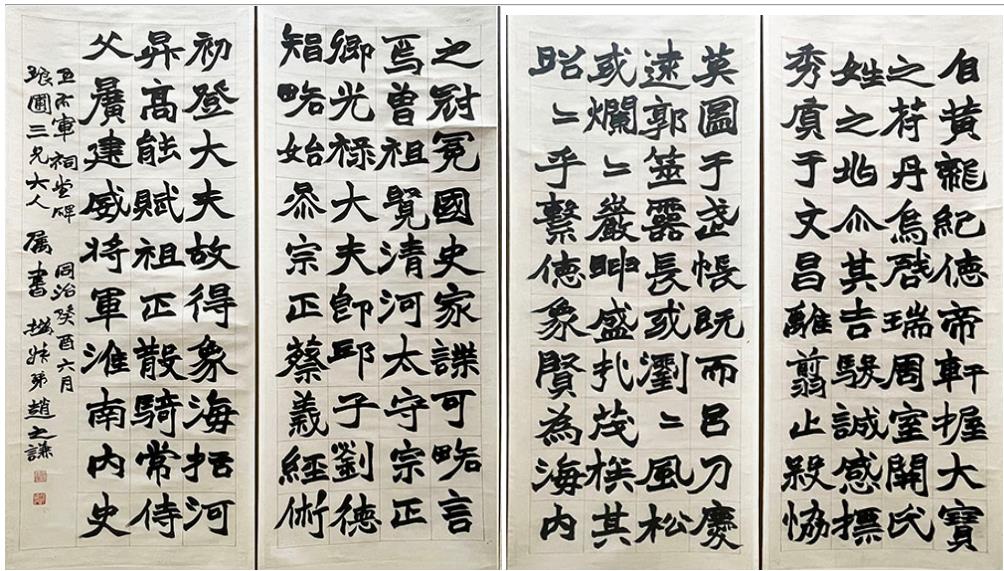 自黃龍紀德帝軒握大寶
之符丹烏啓瑞周室開氏
姓之兆尒其吉駿誠感標
秀虞于文昌離翦止殺協
英圖于武帳既而呂刀慶
逮郭筮靈長或瀏〻風松
或爛〻巖電盛扎茂其
昭〻乎繫德象賢為海內
之冠冕國史家諜可略言
焉曾祖覽清河太守宗正
卿光祿大夫即邱子劉德
智略始忝宗正蔡義經術
初登大夫故得象海括河
昇高能賦祖正散騎常侍
父廣建威將軍淮南內史
王右軍祠堂碑 同治癸酉六月
琅圃三兄大人屬書 撝叔弟趙之謙